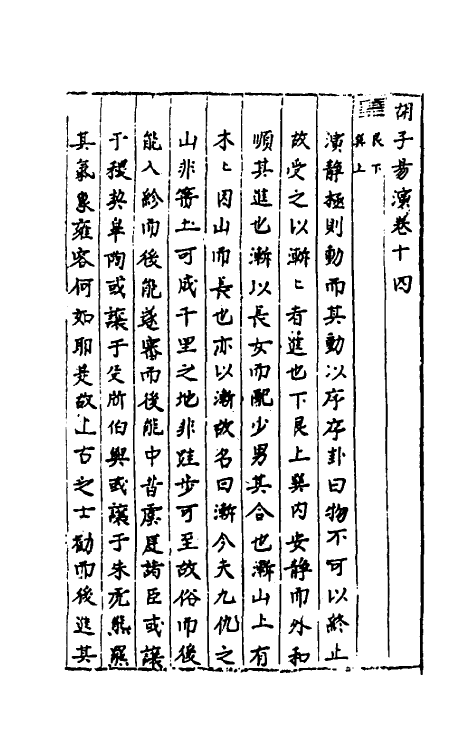 胡子易演卷十四
䷴艮下巽上
演靜極則動而其動以序序卦曰物不可以終止
故受之以漸〻者進也下艮上巽內安靜而外和
順其進也漸以長女而配少男其合也漸山上有
木〻因山而長也亦以漸故名曰漸今夫九仞之
山非簣土可成千里之地非跬步可至故俗而後
能入紾而後能遂審而後能中昔虞廷諸臣或讓
于稷契皋陶或讓于殳斨伯與或讓于朱虎熊羆
其氣象雍容何如耶是故上古之士勸而後進其